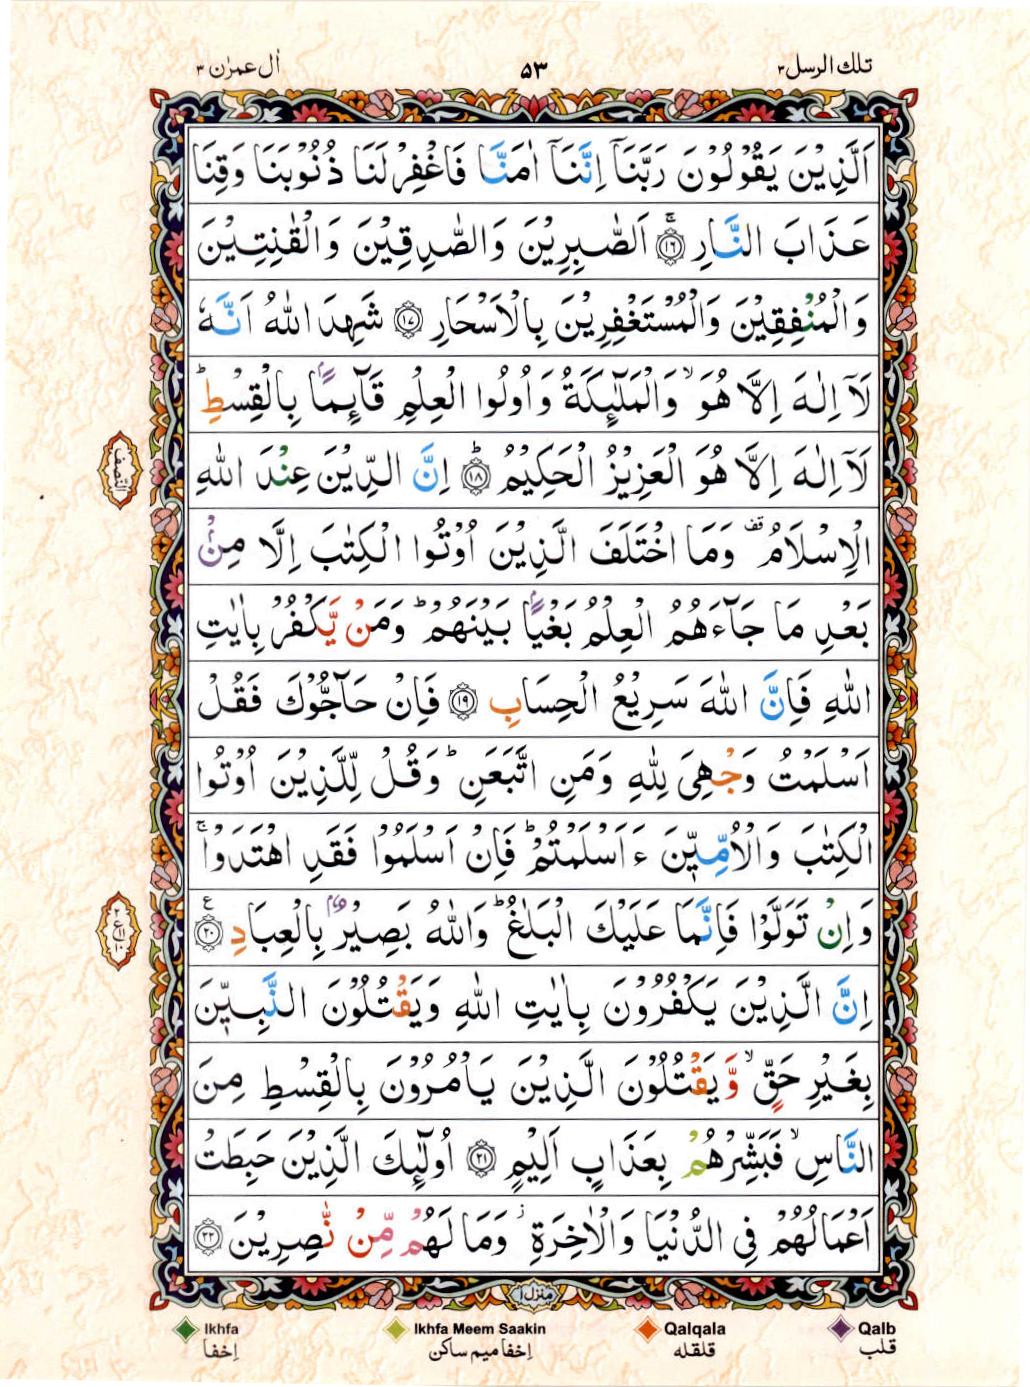 تلك الرسل ٣
٥٣
اٰل عمرٰن ٣
اَلَّذِيْنَ يَقُوْلُوْنَ رَبَّنَاۤ اِنَّنَاۤ اٰمَنَّا فَاغْفِرْ لَنَا ذُنُوْبَنَا وَقِنَا
عَذَابَ النَّارِ ۚ‏﴿۱۶﴾ اَلصّٰبِرِيْنَ وَالصّٰدِقِيْنَ وَالْقٰنِتِيْنَ
وَالْمُنْفِقِيْنَ وَالْمُسْتَغْفِرِيْنَ بِالْاَسْحَارِ ﴿۱۷﴾ شَهِدَ اللّٰهُ اَنَّهٗ
لَاۤ اِلٰهَ اِلَّا هُوَ ۙ وَالْمَلٰٓئِكَةُ وَاُولُوا الْعِلْمِ قَآئِمًا ۢ بِالْقِسْطِ ؕ
لَاۤ اِلٰهَ اِلَّا هُوَ الْعَزِيْزُ الْحَكِيْمُ ؕ﴿۱۸﴾ اِنَّ الدِّيْنَ عِنْدَ اللّٰهِ
النصف
الْاِسْلَامُ ۟ قف وَمَا اخْتَلَفَ الَّذِيْنَ اُوْتُوا الْكِتٰبَ اِلَّا مِنْۢ
بَعْدِ مَا جَآءَهُمُ الْعِلْمُ بَغْيًا ۢ بَيْنَهُمْ ؕ وَمَنْ يَّكْفُرْ بِاٰيٰتِ
اللّٰهِ فَاِنَّ اللّٰهَ سَرِيْعُ الْحِسَابِ ﴿۱۹﴾ فَاِنْ حَآجُّوْكَ فَقُلْ
اَسْلَمْتُ وَجْهِيَ لِلّٰهِ وَمَنِ اتَّبَعَنِ ؕ وَقُلْ لِّلَّذِيْنَ اُوْتُوا
الْكِتٰبَ وَالْاُمِّيّٖنَ ءَاَسْلَمْتُمْ ؕ فَاِنْ اَسْلَمُوْا فَقَدِ اهْتَدَوْا ۚ
وَاِنْ تَوَلَّوْا فَاِنَّمَا عَلَيْكَ الْبَلٰغُ ؕ وَاللّٰهُ بَصِيْرٌۢ بِالْعِبَادِ ﴿۲۰﴾ ع
اِنَّ الَّذِيْنَ يَكْفُرُوْنَ بِاٰيٰتِ اللّٰهِ وَيَقْتُلُوْنَ النَّبِيّٖنَ
بِغَيْرِ حَقٍّ ۙ وَّيَقْتُلُوْنَ الَّذِيْنَ يَاْمُرُوْنَ بِالْقِسْطِ مِنَ
النَّاسِ ۙ فَبَشِّرْهُمْ بِعَذَابٍ اَلِيْمٍ ﴿۲۱﴾ اُولٰٓئِكَ الَّذِيْنَ حَبِطَتْ
اَعْمَالُهُمْ فِي الدُّنْيَا وَالْاٰخِرَةِ ۫ وَمَا لَهُمْ مِّنْ نّٰصِرِيْنَ ﴿۲۲﴾
منزل ۱
Ikhfa
اِخفا
Ikhfa Meem Saakin
اِخفا میم ساکن
Qalqala
قلقله
Qalb
قلب